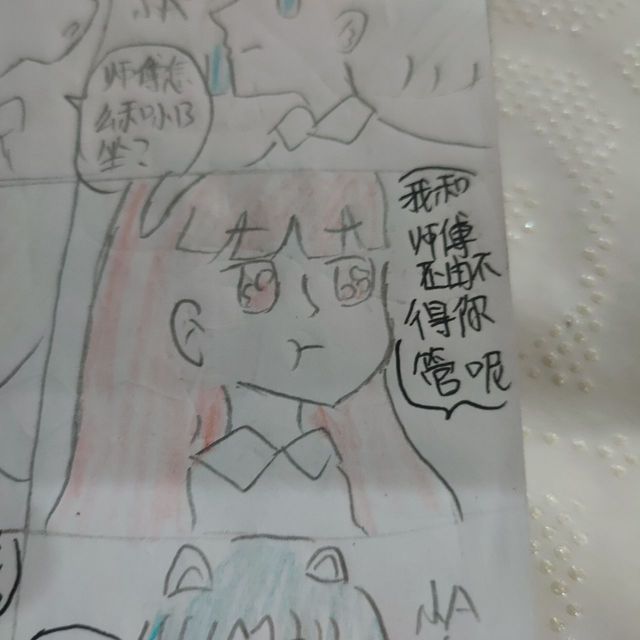 师傅怎
么和小B
坐?
我和
师傅
还由不
得你
管呢